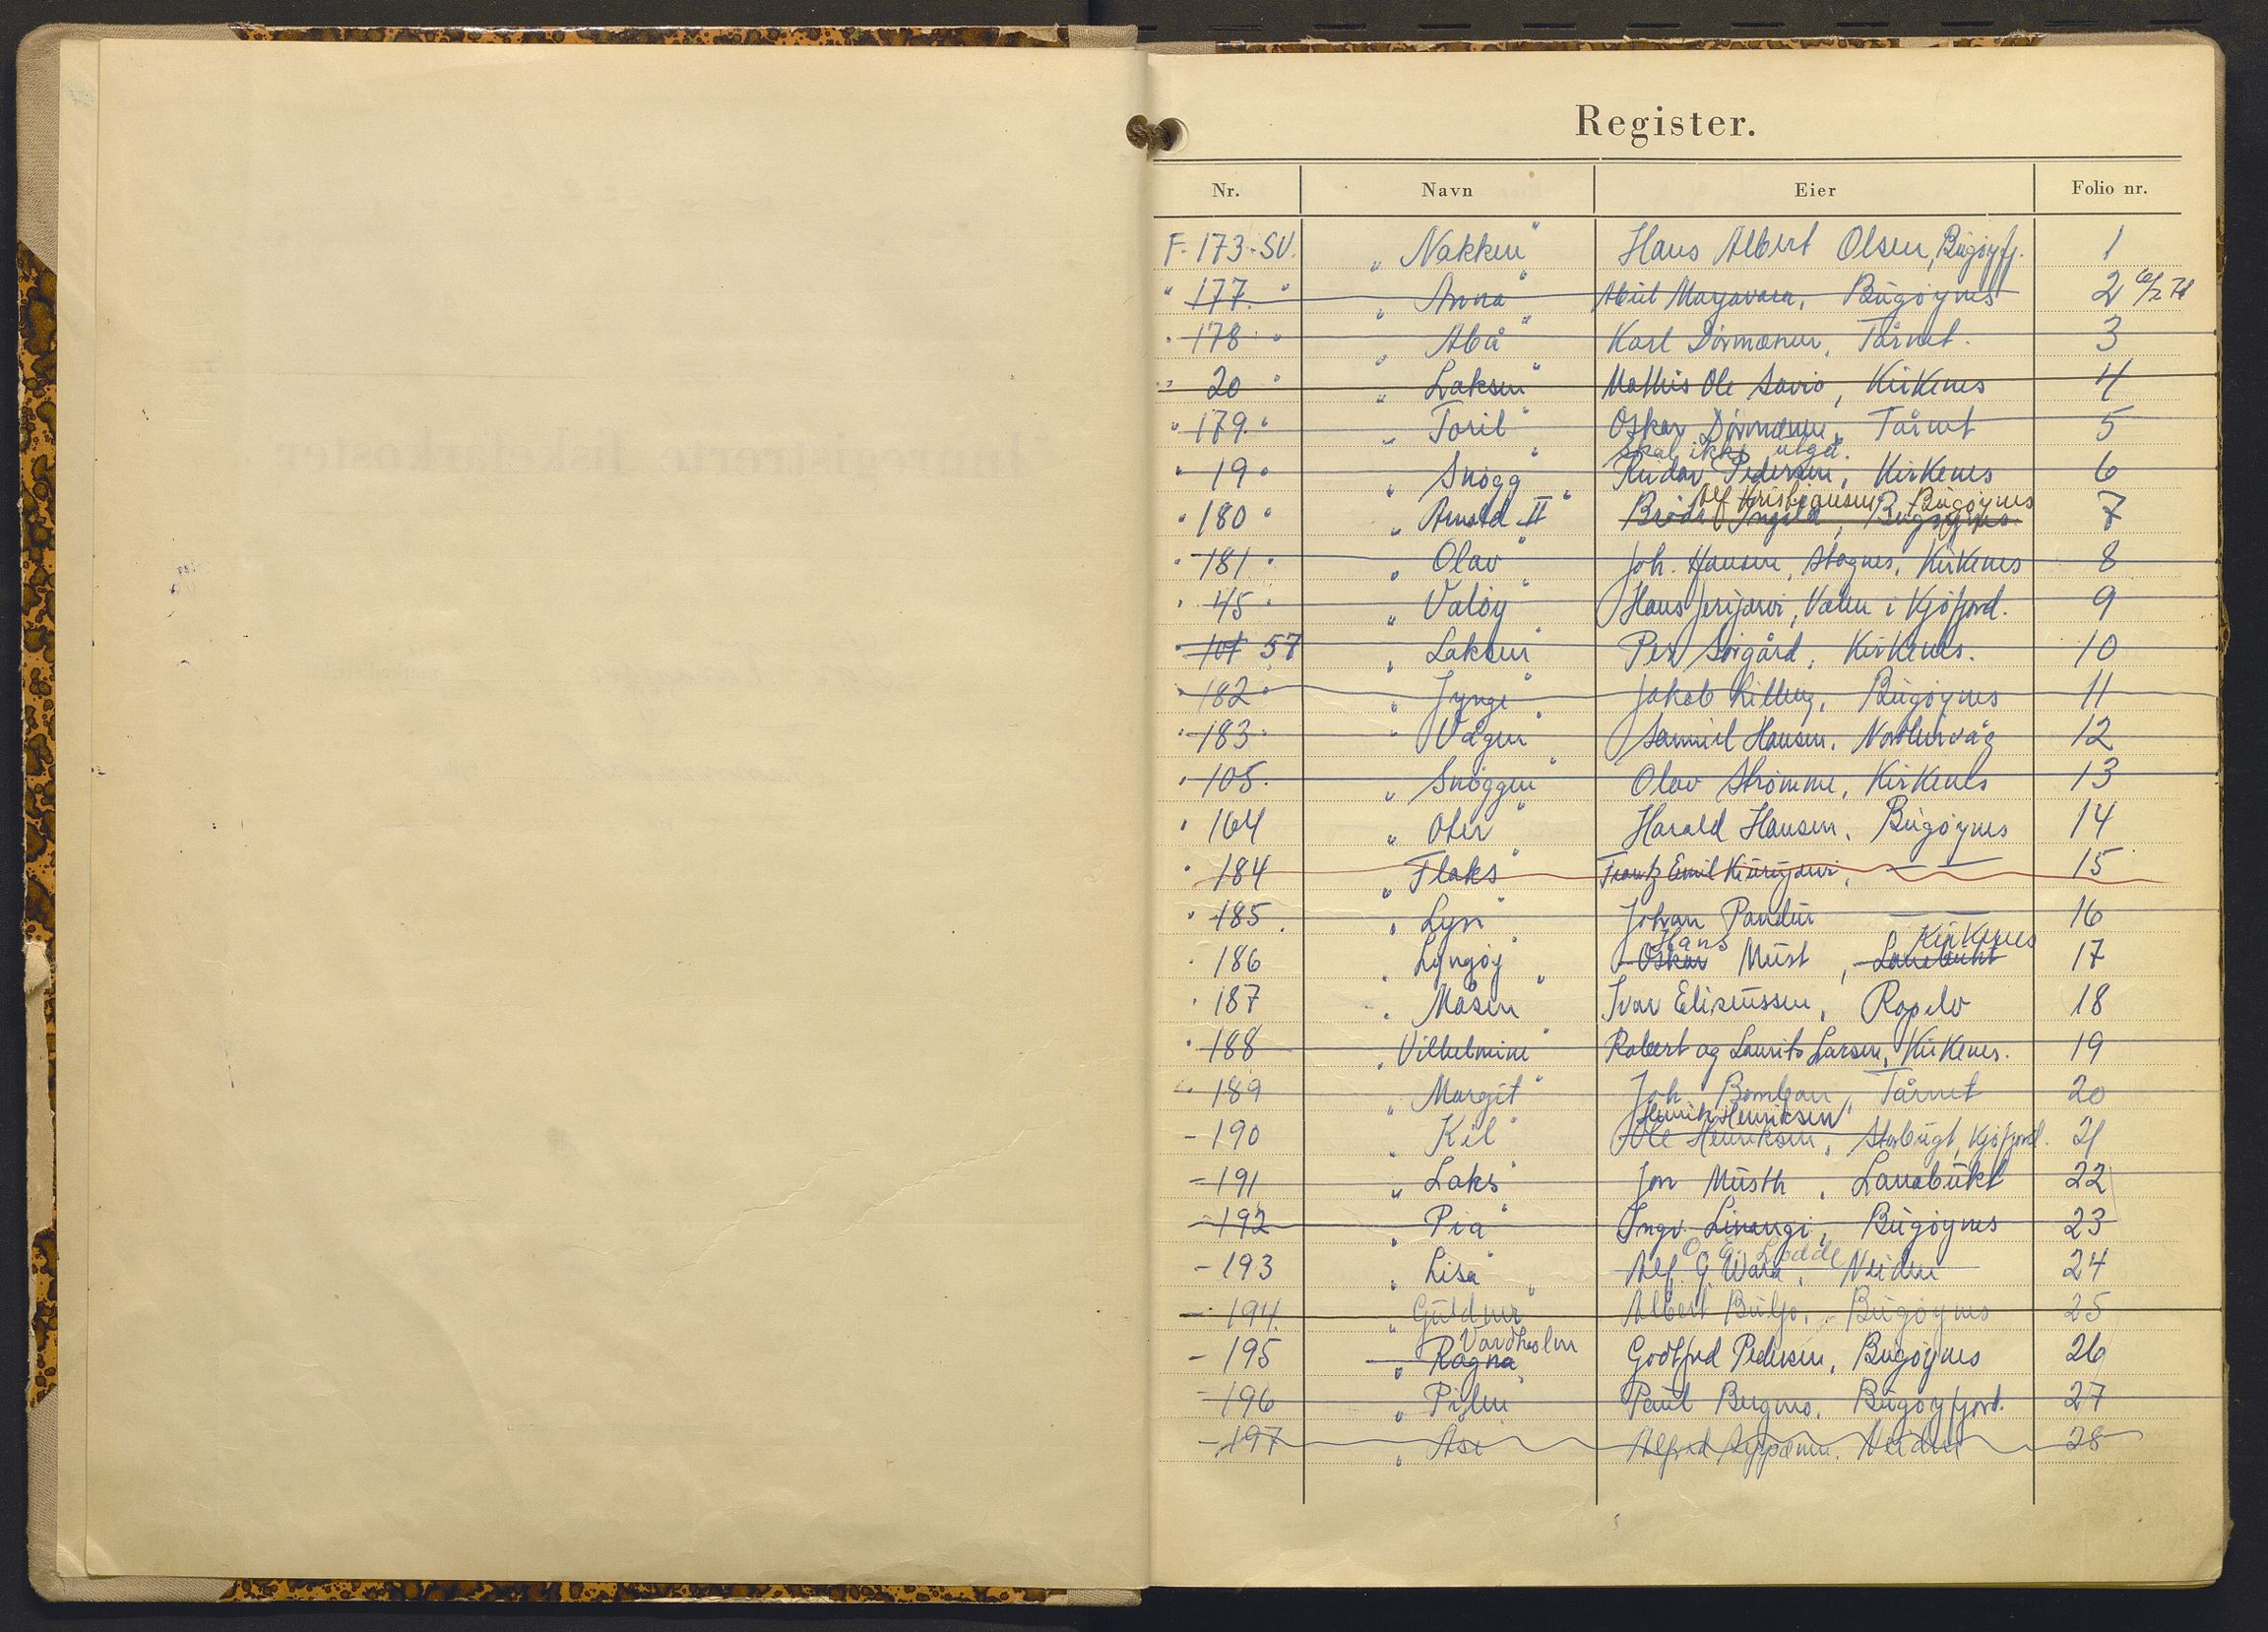 Register.
Nr. Navn Eier Folio nr.
F. 173-SV. „Nakken" Hans Albert Olsen, Bugøyfj. 1
" 177. " „Anna" Bugøynes 2
" 178 " „Abå" Karl Dørmænen, Tårnet. 3
" 20 " „Laksen" Mathis Ole Savio, Kirkenes 4
" 179. " „Toril" Oskar Dørmænen, Tårnet 5
skal ikke utgå.
" 19 " „Snøgg" Reidar Pedersen, Kirkenes 6
Alf Kristiansen Bugøynes
" 180 " „Arnold II" Brødr. Ingilæ, Bugøynes. 7
" 181 " „Olav" Joh. Hansen, Kirkenes 8
" 45 " „Valøy" Hans Jerijærvi, Valen i Kjøfjord. 9
" 101 57 „Laksen" Per Sørgård, Kirkenes. 10
" 182 " „Jynge" Jakob Lilleng, Bugøynes 11
" 183 " „Vågen" Samuel Hansen, Nordleirvåg 12
" 105. „Snøggen" Olav Strømme, Kirkenes 13
" 164 „Oter" Harald Hansen, Bugøynes 14
" 184 „Flaks" Frantz Emil — — 15
" 185. „Lyn" Johan Pandur — — 16
Hans Kirkenes
" 186 „Lyngøy" Oskar Must, Lanabukt 17
" 187 „Måsen" Ivar Eliseussen, Ropelv 18
" 188 „Vilhelmine" Robert og Laurits Larsen, Kirkenes. 19
" 189 „Margit" Joh. Bomban, Tårnet 20
Henrik Henriksen
- 190 „Kil" Ole Henriksen, Storbugt, Kjøfjord. 21
- 191 „Laks" Jon Musth, Lanabukt 22
- 192 „Pia" Ingv. Linangi, Bugøynes 23
O. E. Lodde
- 193 „Lisa" Alf. G. Wara, Neiden 24
- 194. „Guldner" Albert Buljo, Bugøynes 25
Vardholm
- 195 „Ragna" Godtfred Pedersen, Bugøynes 26
- 196 „Pilen" Paul Bugmo, Bugøyfjord. 27
- 197 „Åse" Alfred Neiden 28